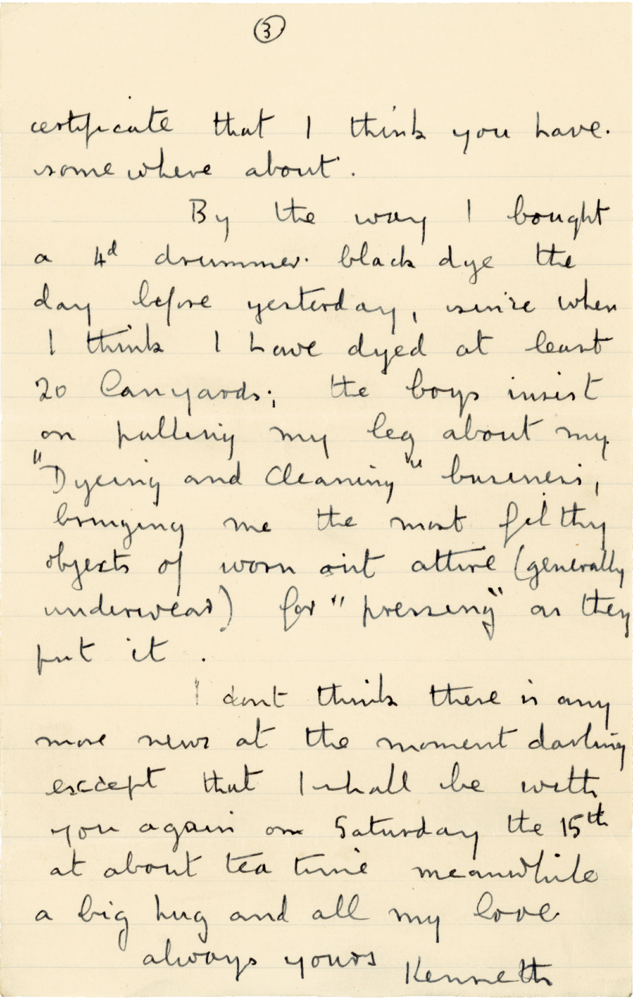 3
certificate that I think you have.
some where about.
By the way I bought
a 4d drummer. black dye the
day before yesterday, since when
I think I have dyed at least
20 Lanyards; the boys insist
on pulling my leg about my
"Dyeing and Cleaning" business,
bringing me the most filthy
objects of worn out attire (generally
underwear) for "pressing" as they
put it.
I dont think there is any
more news at the moment darling
except that I shall be with
you again on Saturday the 15th
at about tea time meanwhile
a big hug and all my love
always yours Kenneth